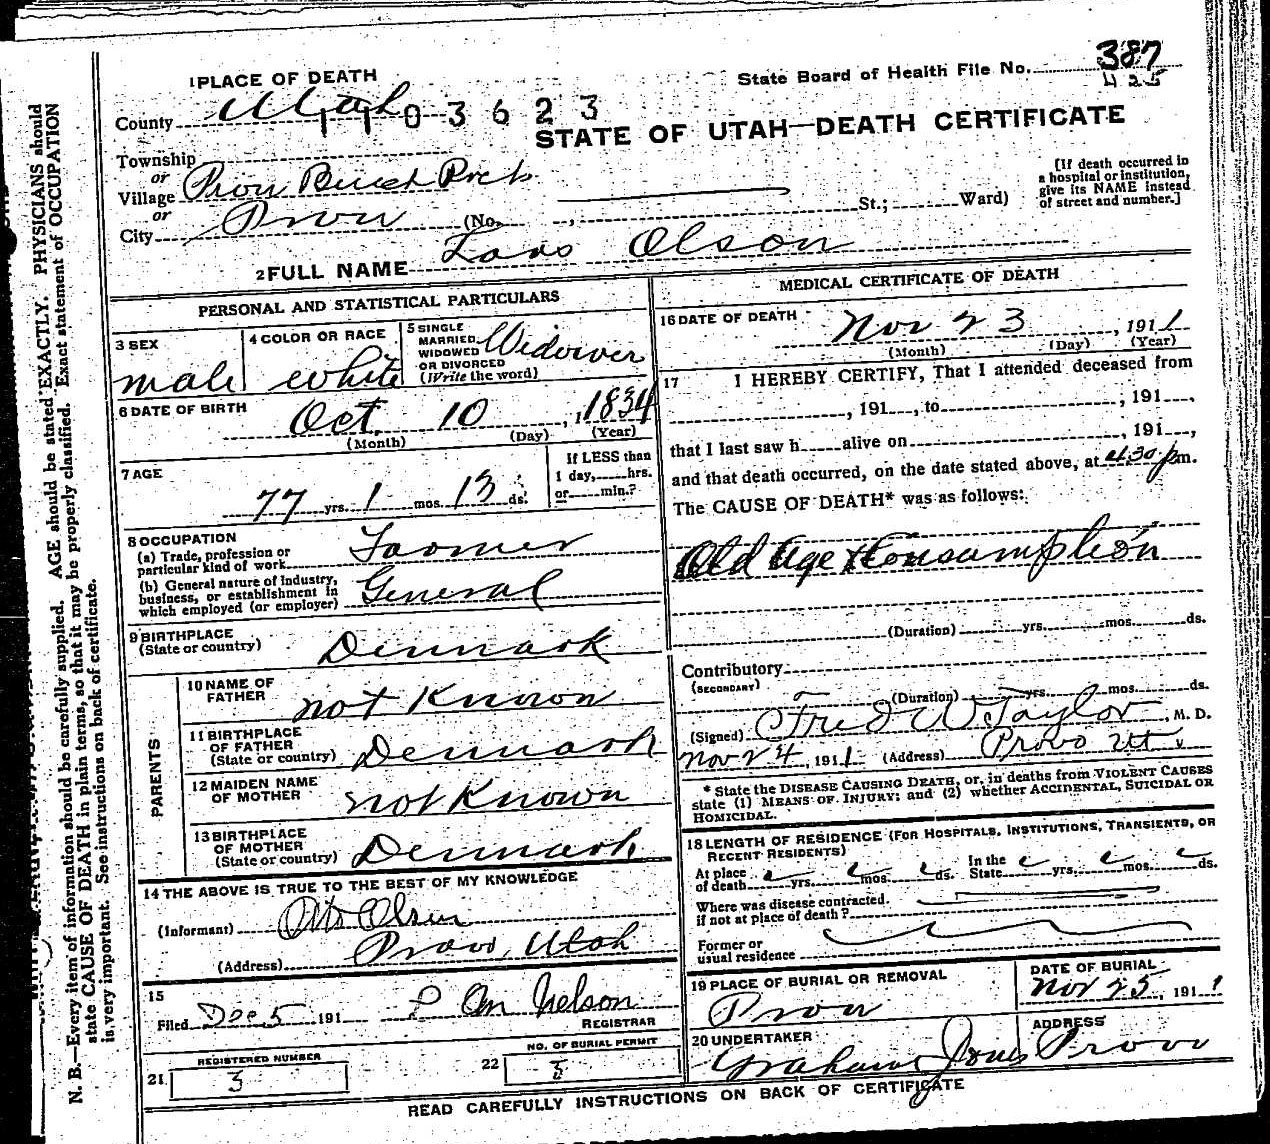 1 PLACE OF DEATH
State Board of Health File No. 387
425
County Utah 1103623
STATE OF UTAH—DEATH CERTIFICATE
Township
or
Village Provo Bench Prct
or
City Provo (No. , St.; Ward)
(If death occurred in
a hospital or institution,
give its NAME instead
of street and number.]
2 FULL NAME Lars Olson
PERSONAL AND STATISTICAL PARTICULARS
3 SEX
male
4 COLOR OR RACE
white
5 SINGLE
MARRIED
WIDOWED
OR DIVORCED
(Write the word)
Widower
6 DATE OF BIRTH
Oct. 10, 1834
(Month) (Day) (Year)
7 AGE
77 yrs. 1 mos. 13 ds.
If LESS than
1 day, hrs.
or min.?
8 OCCUPATION
(a) Trade, profession or
particular kind of work Farmer
(b) General nature of industry,
business, or establishment in
which employed (or employer) General
9 BIRTHPLACE
(State or country) Denmark
PARENTS
10 NAME OF
FATHER not Known
11 BIRTHPLACE
OF FATHER
(State or country) Denmark
12 MAIDEN NAME
OF MOTHER not Known
13 BIRTHPLACE
OF MOTHER
(State or country) Denmark
14 THE ABOVE IS TRUE TO THE BEST OF MY KNOWLEDGE
(Informant) Otto Olsen
(Address) Provo, Utah
15
Filed Dec 5 191 Nelson
REGISTRAR
21 REGISTERED NUMBER
3
22 NO. OF BURIAL PERMIT
3
MEDICAL CERTIFICATE OF DEATH
16 DATE OF DEATH
Nov 23, 1911
(Month) (Day) (Year)
17 I HEREBY CERTIFY, That I attended deceased from
, 191 , to , 191 ,
that I last saw h alive on , 191 ,
and that death occurred, on the date stated above, at 4.30 p m.
The CAUSE OF DEATH* was as follows:
Old Age Consumption
(Duration) yrs. mos. ds.
Contributory
(SECONDARY)
(Duration) yrs. mos. ds.
(Signed) Fred W Taylor, M. D.
Nov 24, 1911 (Address) Provo Ut
* State the DISEASE CAUSING DEATH, or, in deaths from VIOLENT CAUSES
state (1) MEANS OF INJURY; and (2) whether ACCIDENTAL, SUICIDAL OR
HOMICIDAL.
18 LENGTH OF RESIDENCE (FOR HOSPITALS, INSTITUTIONS, TRANSIENTS, OR
RECENT RESIDENTS)
At place
of death yrs. mos. ds.
In the
State yrs. mos. ds.
Where was disease contracted
if not at place of death?
Former or
usual residence
19 PLACE OF BURIAL OR REMOVAL
Provo
DATE OF BURIAL
Nov 25, 1911
20 UNDERTAKER
Graham Jones
ADDRESS
Provo
READ CAREFULLY INSTRUCTIONS ON BACK OF CERTIFICATE
N. B.—Every item of information should be carefully supplied. AGE should be stated EXACTLY. PHYSICIANS should
state CAUSE OF DEATH in plain terms, so that it may be properly classified. Exact statement of OCCUPATION
is very important. See instructions on back of certificate.